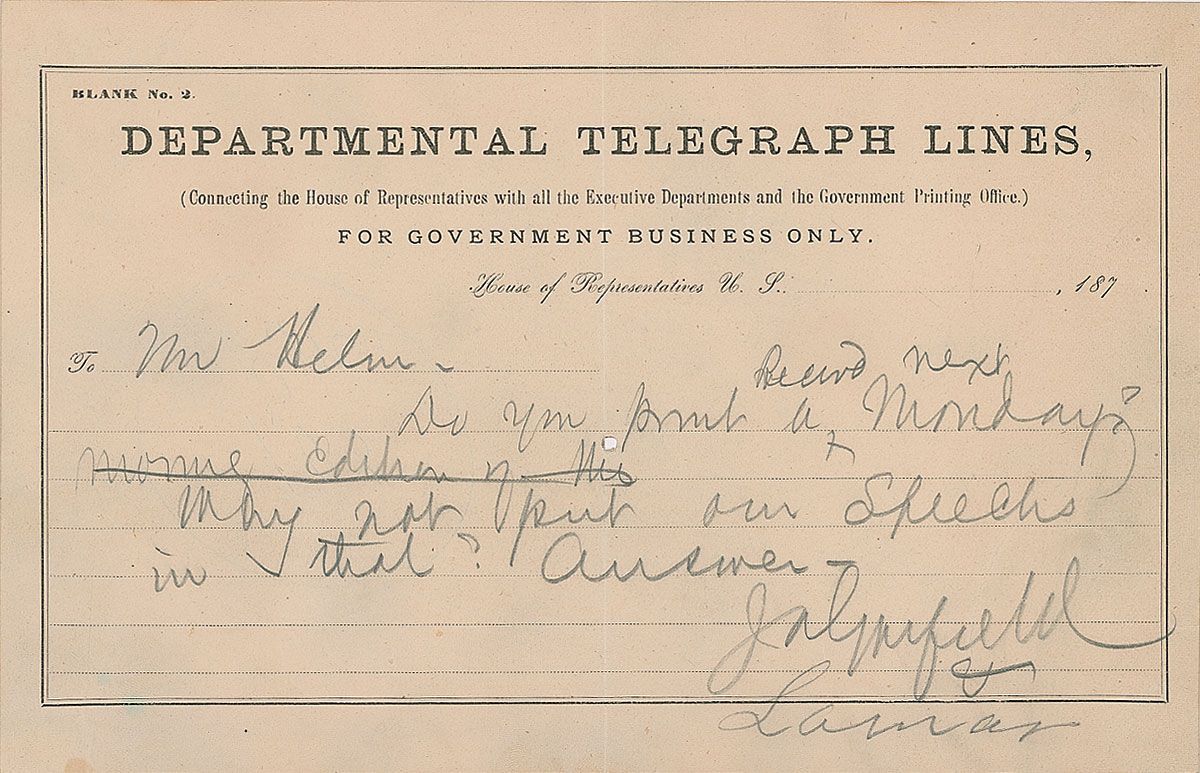 BLANK No. 2.
DEPARTMENTAL TELEGRAPH LINES,
(Connecting the House of Representatives with all the Executive Departments and the Government Printing Office.)
FOR GOVERNMENT BUSINESS ONLY.
House of Representatives U. S. , 187
To Mr Helm -
Record next
Do you print a ^ Monday?
edition of this
Why not put our Speechs
in that? Answer -
J A Garfield
&
Lamar